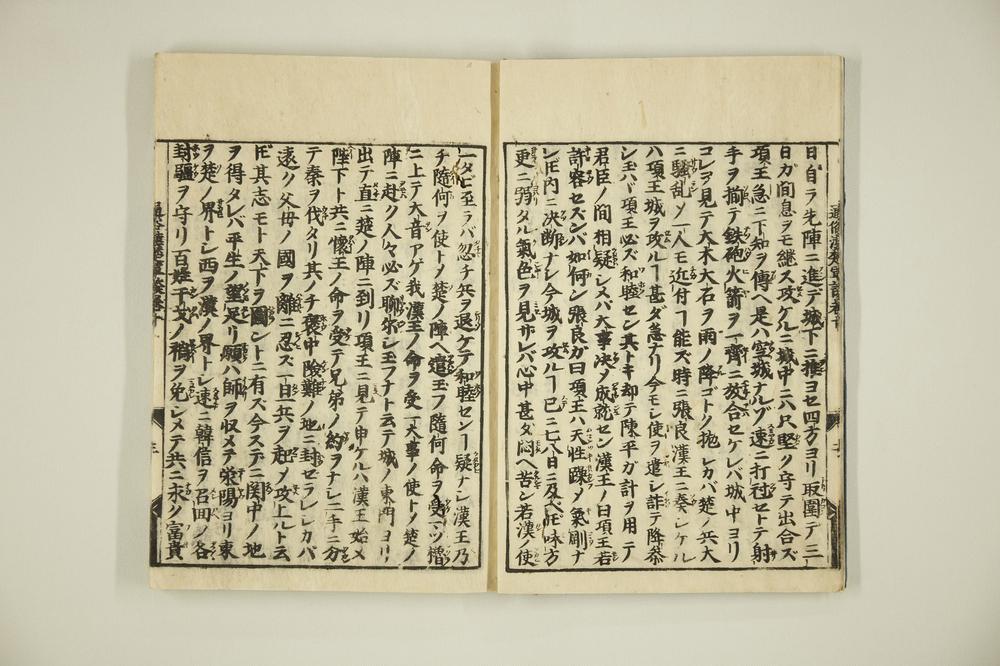 日自ラ先陣ニ進デ城下ニ推ヨセ四方ヨリ取圍デ三
日ガ間息ヲモ継ス攻ケルニ城中ニハ只堅ク守テ出合ズ
項王急ニ下知ヲ傳ヘ是ハ空城ナルゾ速ニ打社セトテ射
手ヲ揃テ鉄砲火箭ヲ一齊ニ放合セケレバ城中ヨリ
コレヲ見テ大木大石ヲ雨ノ降ゴトク抛レカバ楚ノ兵大
ニ騒乱メ一人モ近付ヿ能ズ時ニ張良漢王ニ奏シケル
ハ項王城ヲ攻ルヿ甚ダ急ナリ今モシ使ヲ遣シ詐テ降參
シ玉ハヾ項王必ズ和睦セン其トキ却テ陳平ガ計ヲ用テ
君臣ノ間相疑シメバ大事決メ成就セン漢王ノ曰項王若
許容セズンバ如何シ張良ガ曰項王ハ天性躁メ氣剛ナ
レ𪜈内ニ決断ナシ今城ヲ攻ルヿ已ニ七八日ニ及𪜈味方
更ニ弱タル氣色ヲ見サレバ心中甚ダ悶ヘ苦シ若漢ノ使
一タビ至ラバ忽チ兵ヲ退ケテ和睦センヿ疑ナシ漢王乃
チ隨何ヲ使トメ楚ノ陣ヘ遣玉フ隨何命ヲ受ツヽ櫓
ニ上テ大音アゲ我漢王ノ命ヲ受一大事ノ使トメ楚ノ
陣ニ赴ク人々必ズ聊尓シ玉フナト云テ城ノ東門ヨリ
出テ直ニ楚ノ陣ニ到リ項王ニ見テ申ケルハ漢王始メ
陛下ト共ニ懐王ノ命ヲ受テ兄弟ノ約ヲナシ二手ニ分
テ秦ヲ伐タリ其ノチ褒中險難ノ地ニ封ゼラレシカバ
遠ク父母ノ國ヲ離ニ忍ズ一旦兵ヲ起メ攻上ルト云
𪜈其志モト天下ヲ圖ントニ有ズ今スデニ関中ノ地
ヲ得タレバ平生ノ望足リ願ハ師ヲ収メテ滎陽ヨリ東
ヲ楚ノ界トシ西ヲ漢ノ界トシ速ニ韓信ヲ召回メ各
封疆ヲ守リ百姓干戈ノ難ヲ免シメテ共ニ永ク富貴